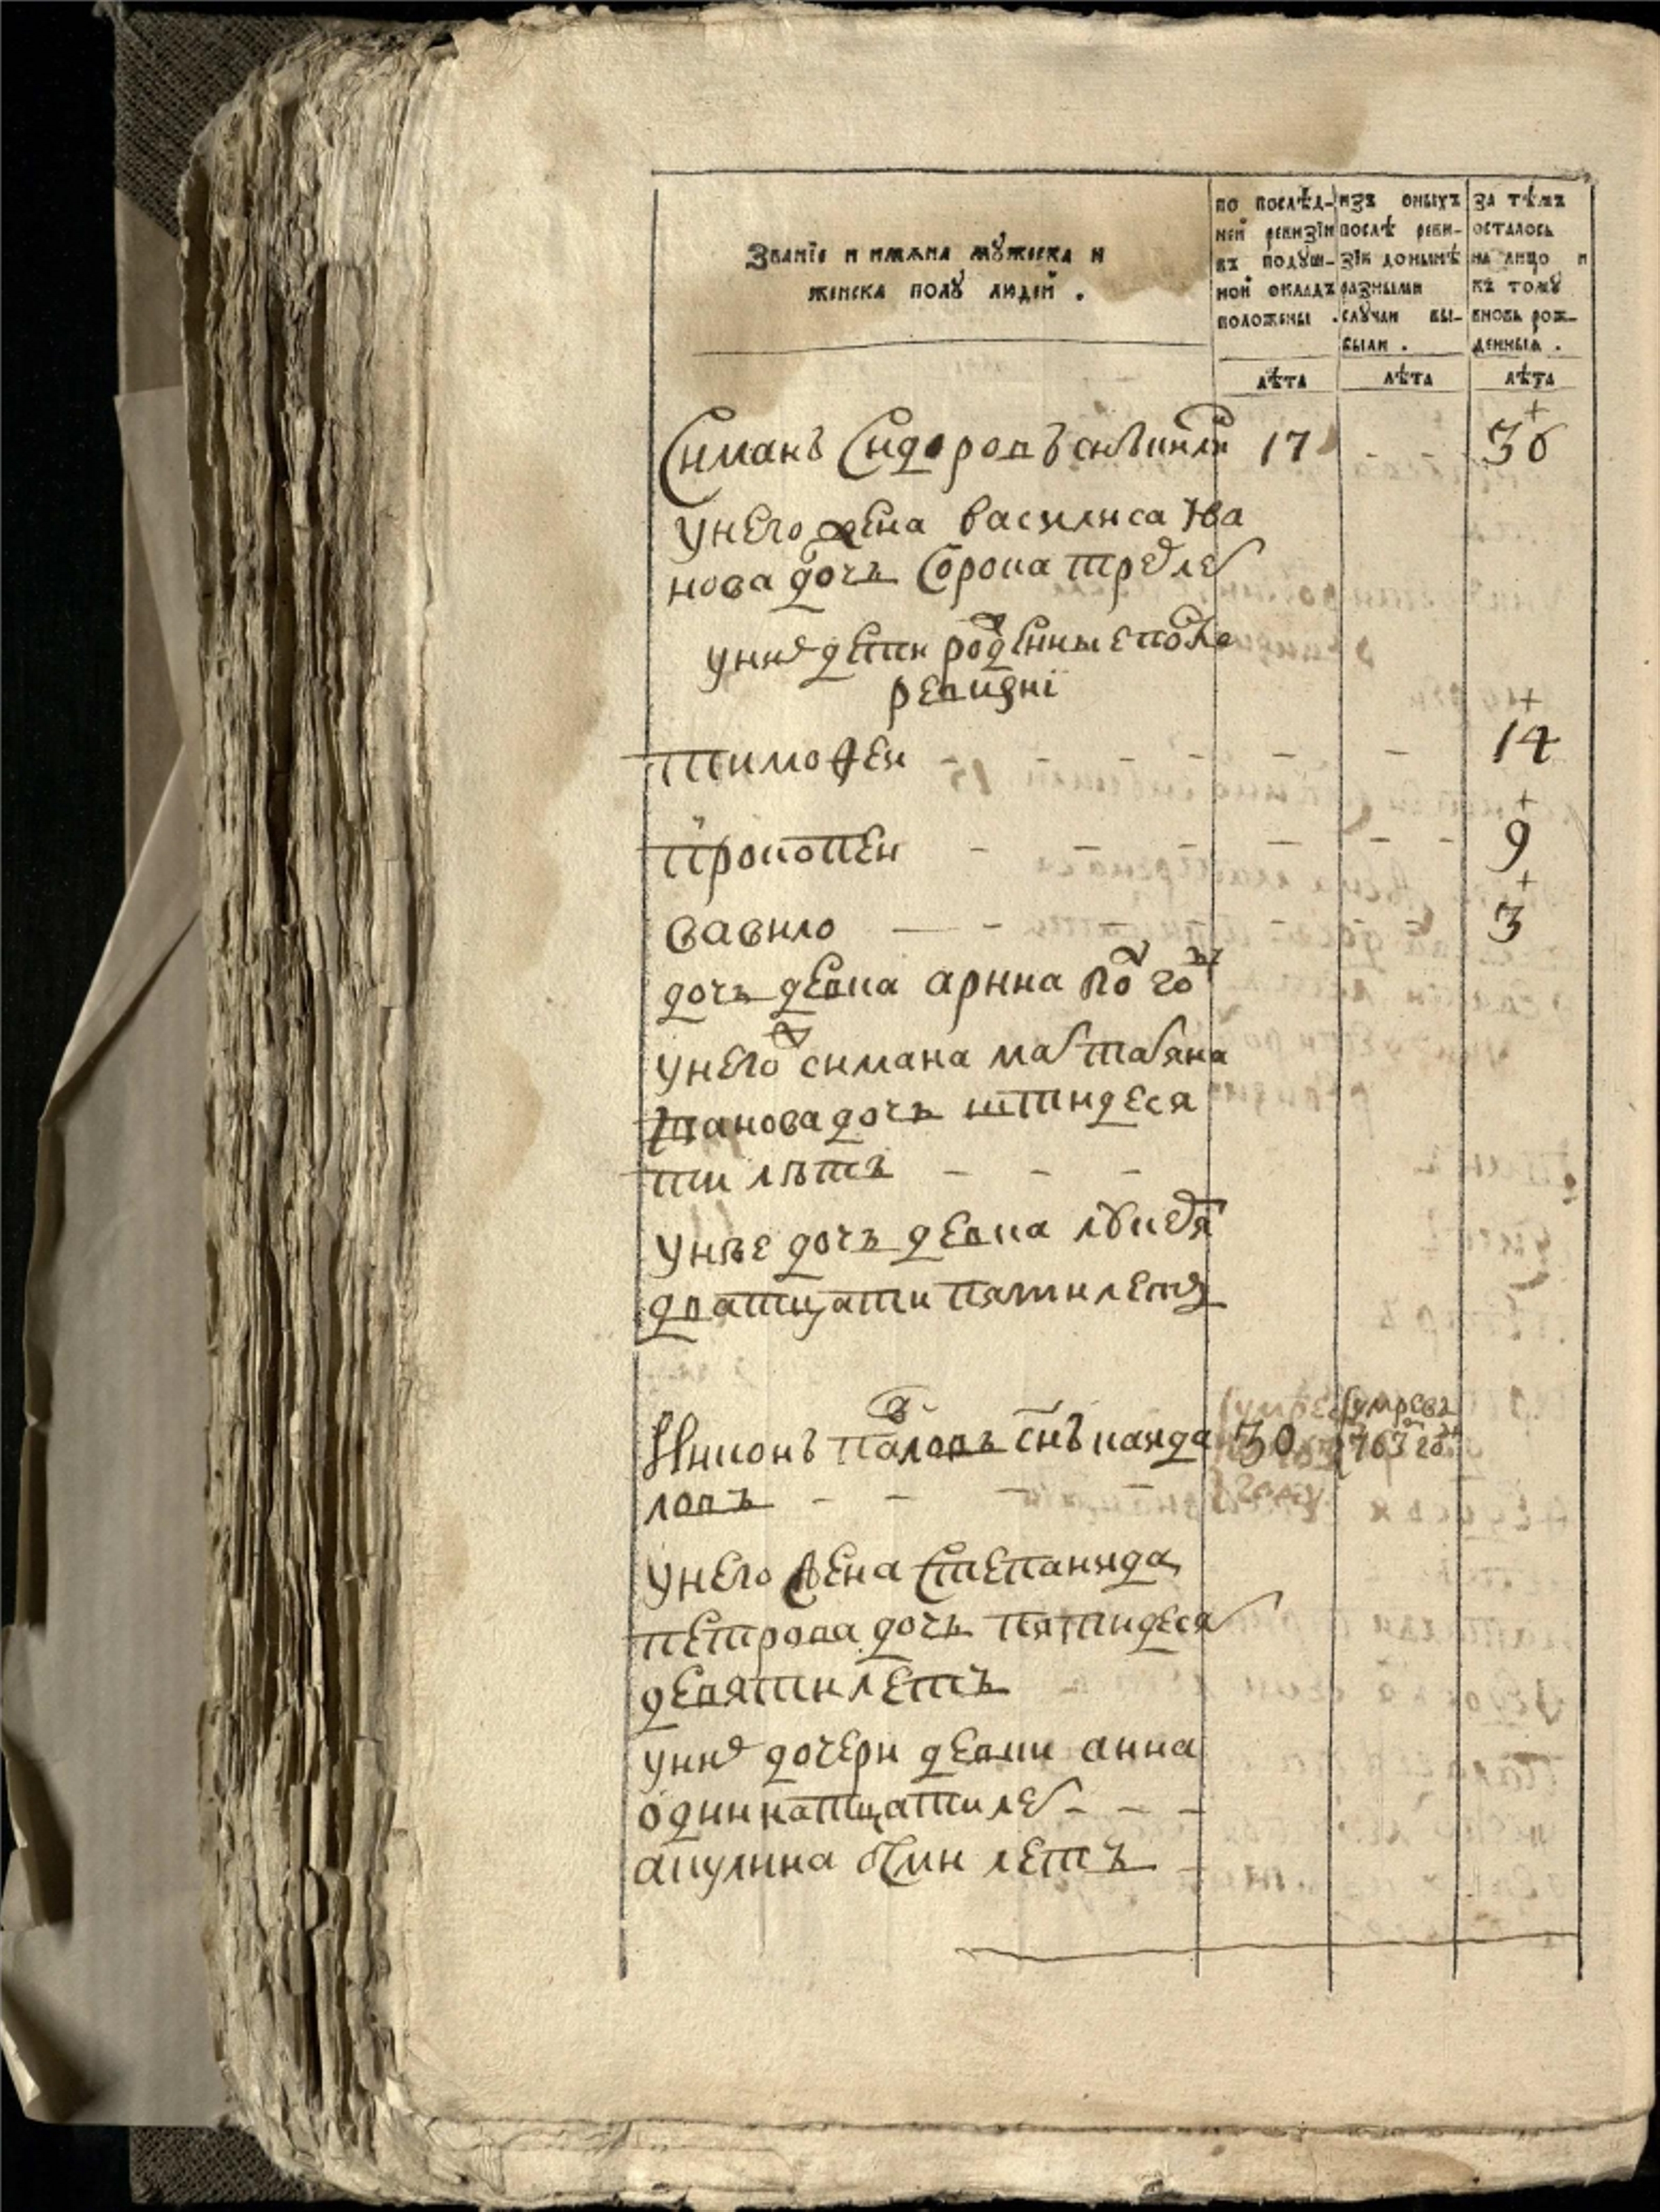 Званіе и имѧна мꙋжеска и
женска полꙋ людей .
по послѣд-
ней ревизіи
въ подꙋш-
ной окладъ
положены .
изъ оныхъ
послѣ реви-
зіи донынѣ
разными
слꙋчаи вы-
были .
за тѣмъ
осталось
на лицо и
къ томꙋ
вновь рож-
денныѧ .
лѣта лѣта лѣта
Симанъ Сидоровъ снъ 17 + 38
унего жена василиса Ива
нова дочь сорока трех лет
уних дети рожденные после
ревизиі
тимофеи - - - - - + 14
прокопеи - - - - - + 9
вавило - - + 3
дочь девка арина полгоду
унего симана мат татьяна
дочь штидеся
ти лѣтъ - - -
унѣе дочь девка лукерья
дватцати пяти летъ
Никонъ павловъ снъ канда 30 умре в 1763 году
ловъ - - - -
унего жена степанида
петрова дочь пятидеся
девяти летъ
уних дочери девки анна
одиннатцати лет - - -
акулина осми летъ -